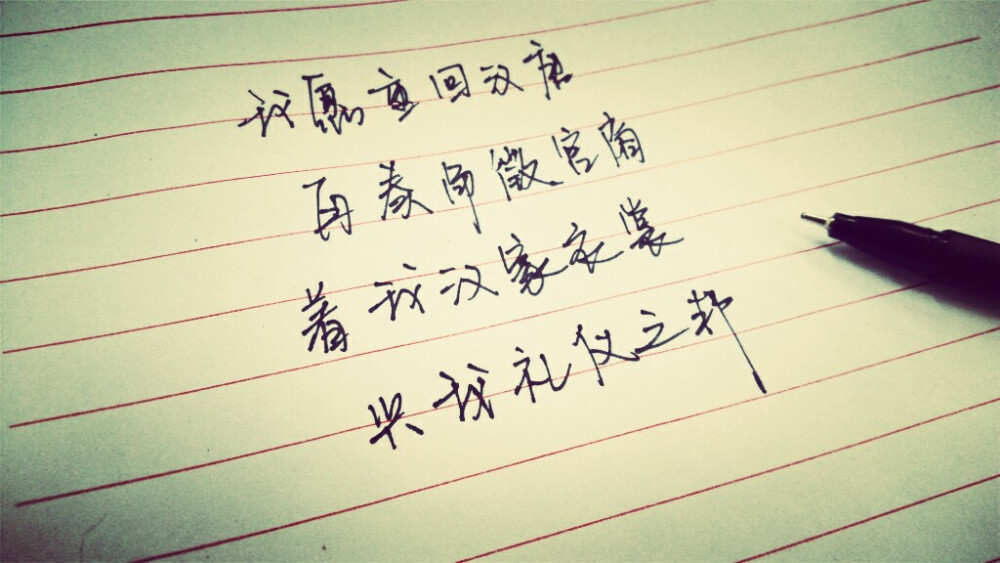 我愿重回汉唐
再奏角徵宫商
着我汉家衣裳
兴我礼仪之邦